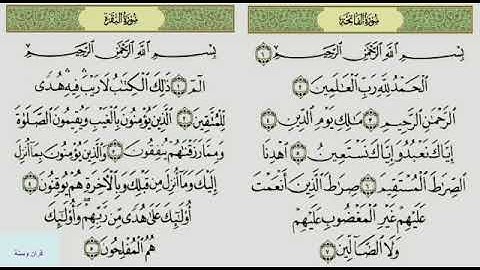 سُورَةُ الفَاتِحَةِ
بِسْمِ ٱللَّهِ ٱلرَّحْمَٰنِ ٱلرَّحِيمِ ١
ٱلْحَمْدُ لِلَّهِ رَبِّ ٱلْعَٰلَمِينَ ٢
ٱلرَّحْمَٰنِ ٱلرَّحِيمِ ٣ مَٰلِكِ يَوْمِ ٱلدِّينِ ٤
إِيَّاكَ نَعْبُدُ وَإِيَّاكَ نَسْتَعِينُ ٥ ٱهْدِنَا
ٱلصِّرَٰطَ ٱلْمُسْتَقِيمَ ٦ صِرَٰطَ ٱلَّذِينَ أَنْعَمْتَ
عَلَيْهِمْ غَيْرِ ٱلْمَغْضُوبِ عَلَيْهِمْ
وَلَا ٱلضَّآلِّينَ ٧
سُورَةُ البَقَرَةِ
بِسْمِ ٱللَّهِ ٱلرَّحْمَٰنِ ٱلرَّحِيمِ
الٓمٓ ١ ذَٰلِكَ ٱلْكِتَٰبُ لَا رَيْبَ فِيهِ هُدًى
لِّلْمُتَّقِينَ ٢ ٱلَّذِينَ يُؤْمِنُونَ بِٱلْغَيْبِ وَيُقِيمُونَ ٱلصَّلَوٰةَ
وَمِمَّا رَزَقْنَٰهُمْ يُنفِقُونَ ٣ وَٱلَّذِينَ يُؤْمِنُونَ بِمَآ أُنزِلَ
إِلَيْكَ وَمَآ أُنزِلَ مِن قَبْلِكَ وَبِٱلْءَاخِرَةِ هُمْ يُوقِنُونَ ٤
أُو۟لَٰٓئِكَ عَلَىٰ هُدًى مِّن رَّبِّهِمْ وَأُو۟لَٰٓئِكَ
هُمُ ٱلْمُفْلِحُونَ ٥
قرآن وسنة